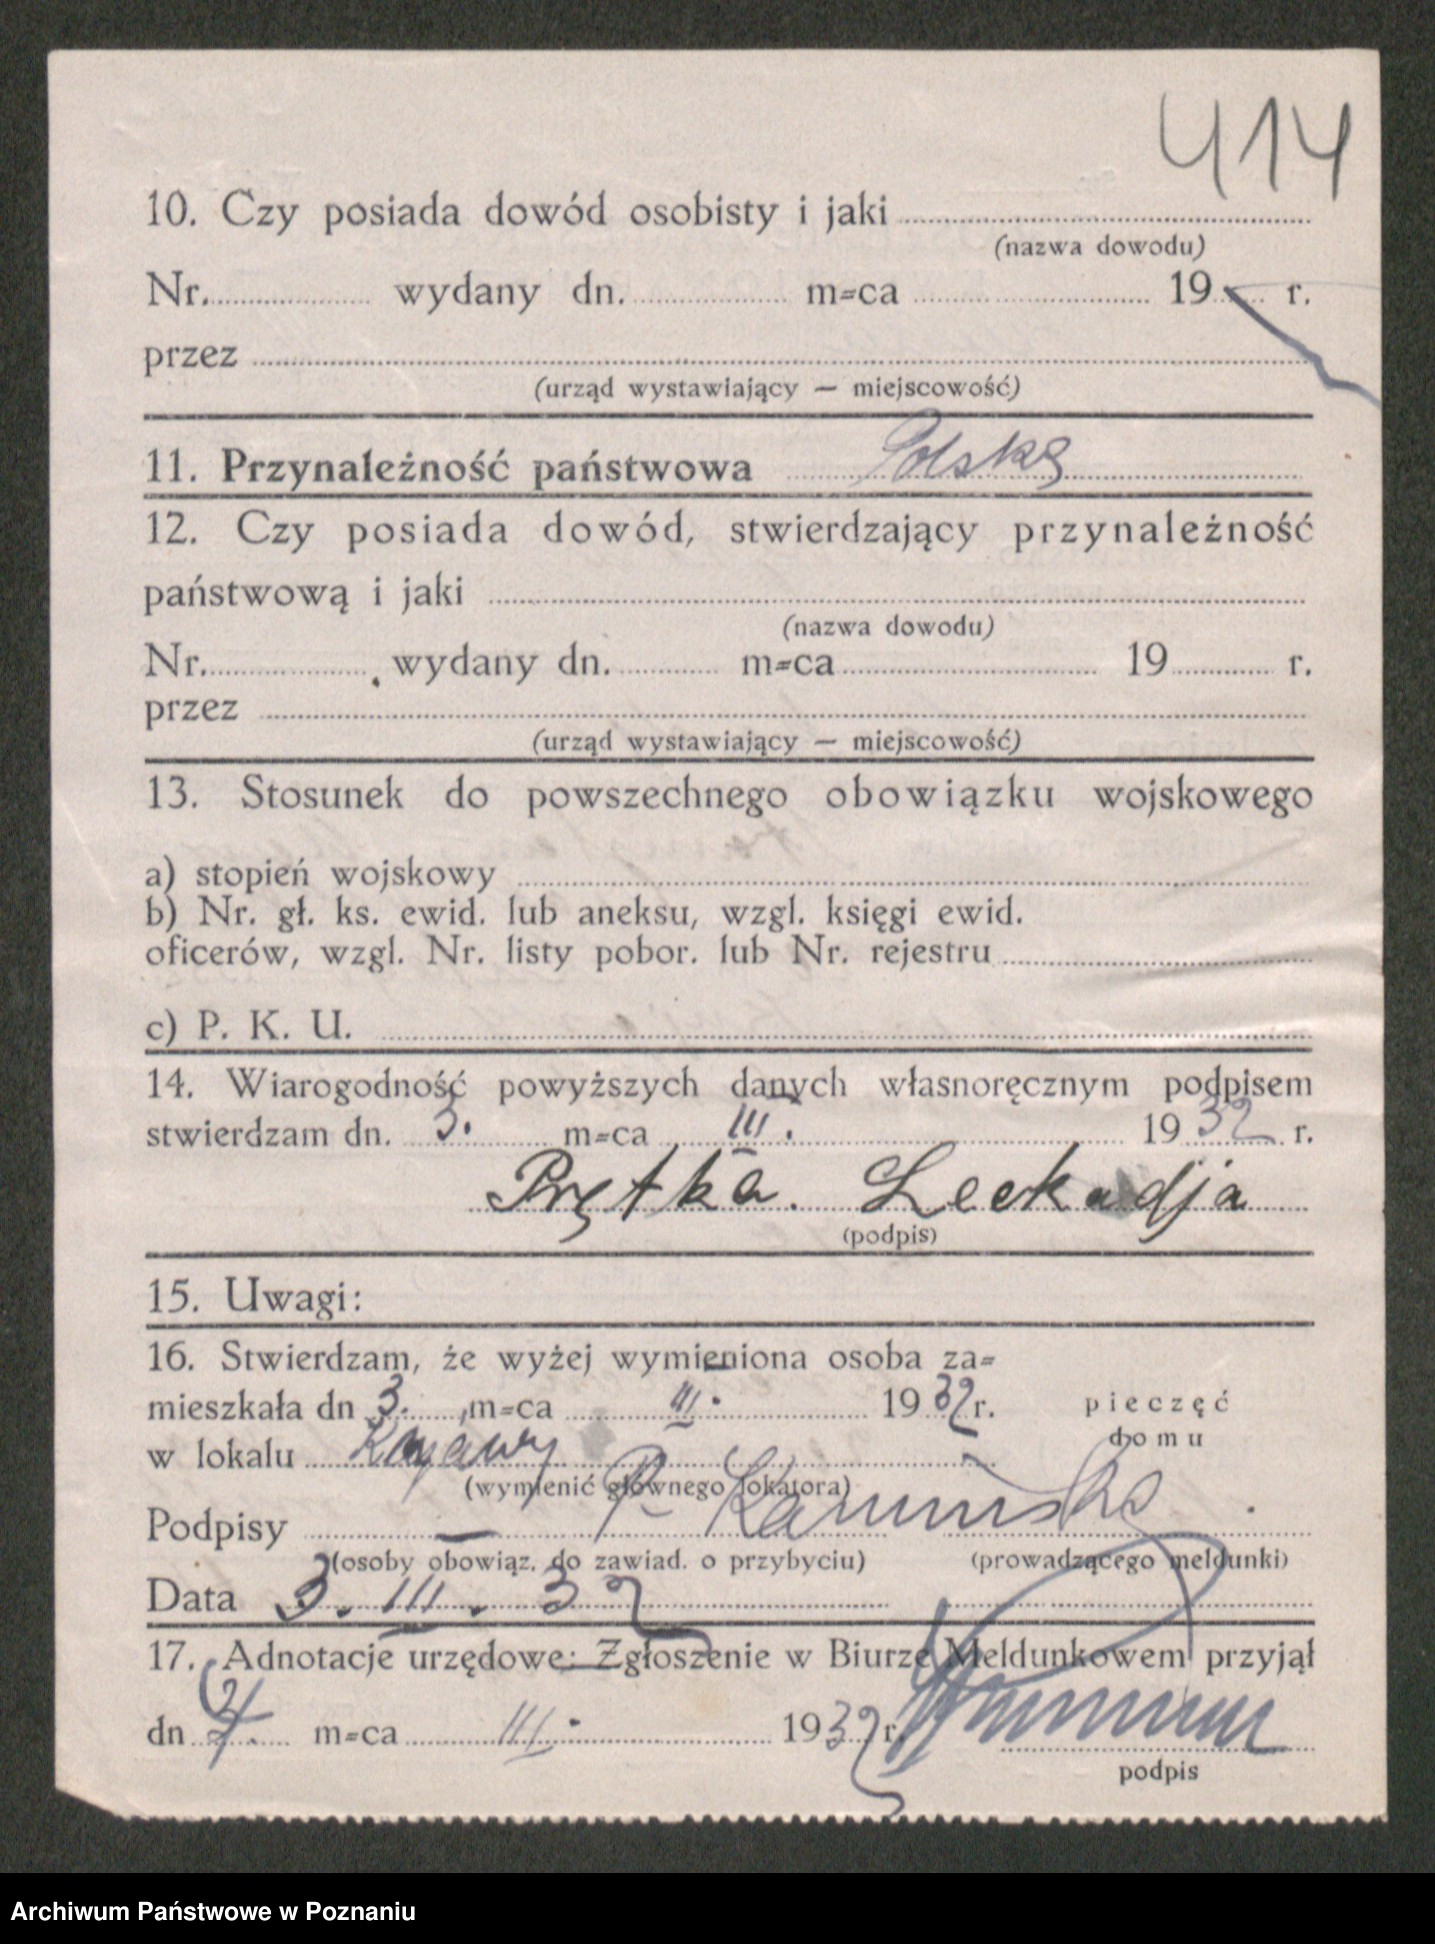 414
10. Czy posiada dowód osobisty i jaki
(nazwa dowodu)
Nr. wydany dn. m=ca 19 r.
przez
(urząd wystawiający — miejscowość)
11. Przynależność państwowa Polska
12. Czy posiada dowód, stwierdzający przynależność
państwową i jaki
(nazwa dowodu)
Nr. wydany dn. m=ca 19 r.
przez
(urząd wystawiający — miejscowość)
13. Stosunek do powszechnego obowiązku wojskowego
a) stopień wojskowy
b) Nr. gł. ks. ewid. lub aneksu, wzgl. księgi ewid.
oficerów, wzgl. Nr. listy pobor. lub Nr. rejestru
c) P. K. U.
14. Wiarogodność powyższych danych własnoręcznym podpisem
stwierdzam dn. 3. m=ca III. 1932 r.
Prętka. Leokadja
(podpis)
15. Uwagi:
16. Stwierdzam, że wyżej wymieniona osoba za=
mieszkała dn 3. m=ca III. 1932 r. pieczęć
domu
w lokalu
(wymienić głównego lokatora)
Podpisy
(osoby obowiąz. do zawiad. o przybyciu) (prowadzącego meldunki)
Data 3. III. 32
17. Adnotacje urzędowe: Zgłoszenie w Biurze Meldunkowem przyjął
dn 4. m=ca III. 1932 r.
podpis
Archiwum Państwowe w Poznaniu